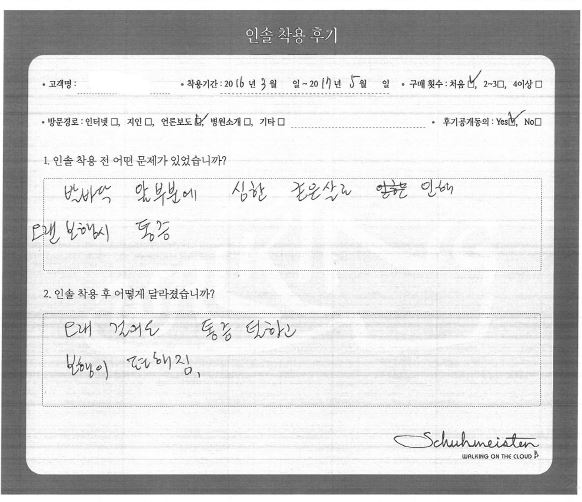 인솔 착용 후기
• 고객명 : • 착용기간 : 2016년 3월 일 ~ 2017년 5월 일 • 구매 횟수 : 처음☑, 2~3□, 4이상□
• 방문경로 : 인터넷 □, 지인 □, 언론보도 ☑, 병원소개 □, 기타 □ • 후기공개동의 : Yes☑, No□
1. 인솔 착용 전 어떤 문제가 있었습니까?
발바닥 앞부분에 심한 굳은살로 인해
오랜 보행시 통증
2. 인솔 착용 후 어떻게 달라졌습니까?
오래 걸어도 통증 덜하고
보행이 편해짐.
Schuhmeister
WALKING ON THE CLOUD